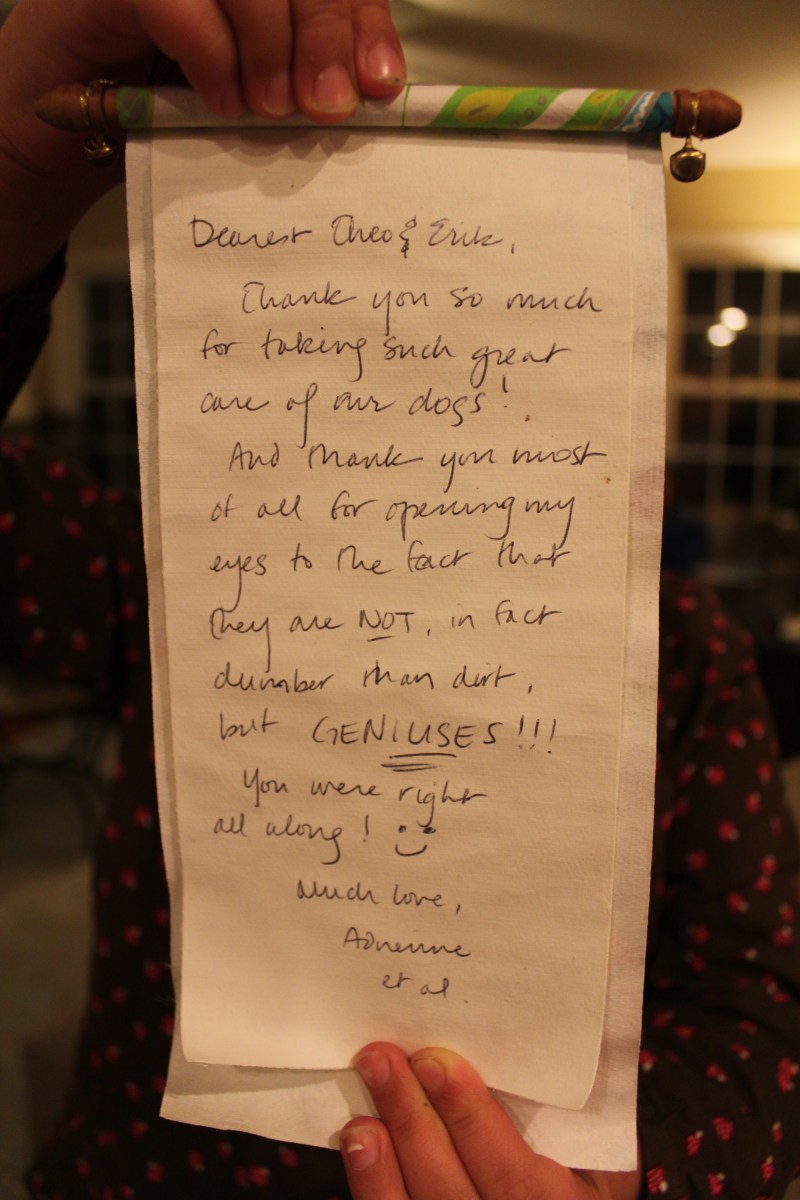 Dearest Theo & Erik,
Thank you so much
for taking such great
care of our dogs!
And thank you most
of all for opening my
eyes to the fact that
they are NOT, in fact
dumber than dirt,
but GENIUSES!!!
You were right
all along! :)
Much love,
Adrienne
et al.